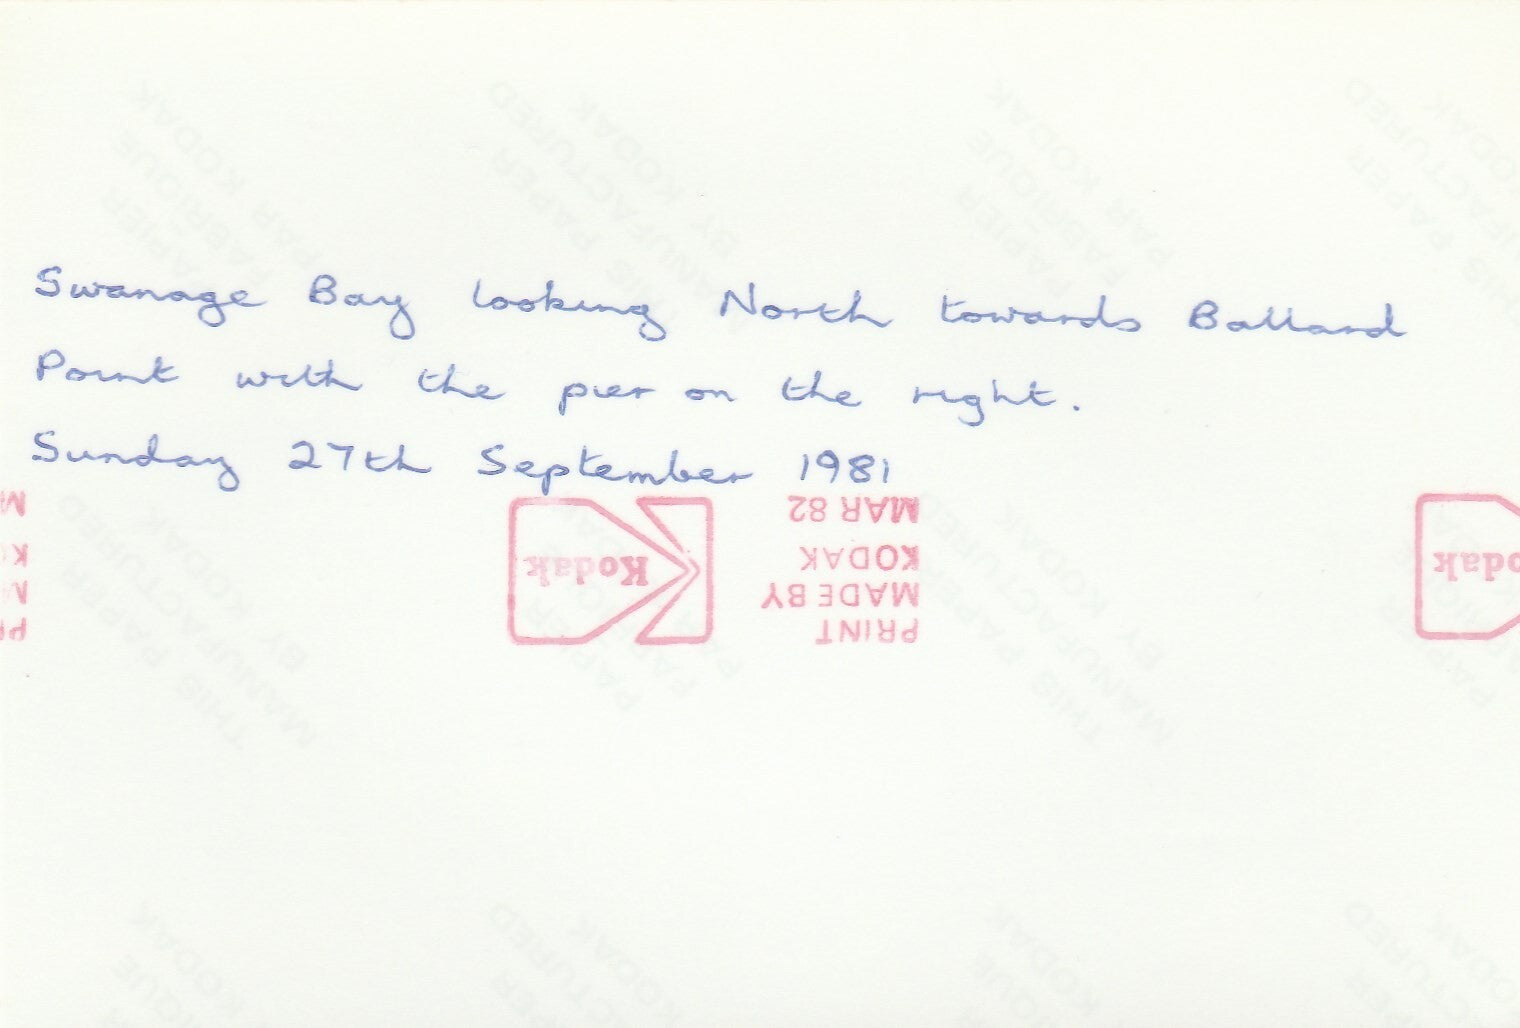 Swanage Bay looking North towards Ballard
Point with the pier on the right.
Sunday 27th September 1981
Kodak
PRINT
MADE BY
KODAK
MAR 82
Kodak
THIS PAPER
MANUFACTURED
BY KODAK
PAPIER
FABRIQUE
PAR KODAK